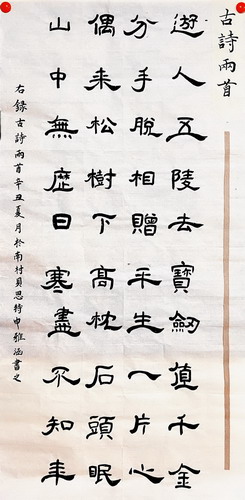 古詩兩首
遊人五陵去寶劔值千金
分手脫相贈平生一片心
偶来松樹下高枕石頭眠
山中無歷日寒盡不知年
右錄古詩兩首辛丑夏月於南村貝思特申雅涵書之